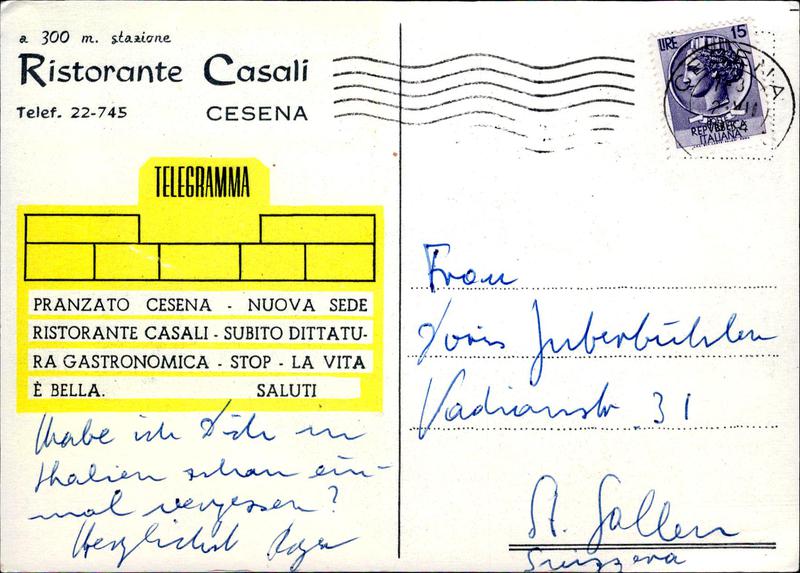 a 300 m. stazione
Ristorante Casali
Telef. 22-745 CESENA
TELEGRAMMA
PRANZATO CESENA - NUOVA SEDE
RISTORANTE CASALI - SUBITO DITTATU-
RA GASTRONOMICA - STOP - LA VITA
È BELLA. SALUTI
Habe ich Dich in
Italien schon ein-
mal vergessen?
Herzlichst Roger
LIRE 15
POSTE
REPVBBLICA
ITALIANA
Frau
Doris Zuberbühler
Vadianstr 31
St. Gallen
Svizzera